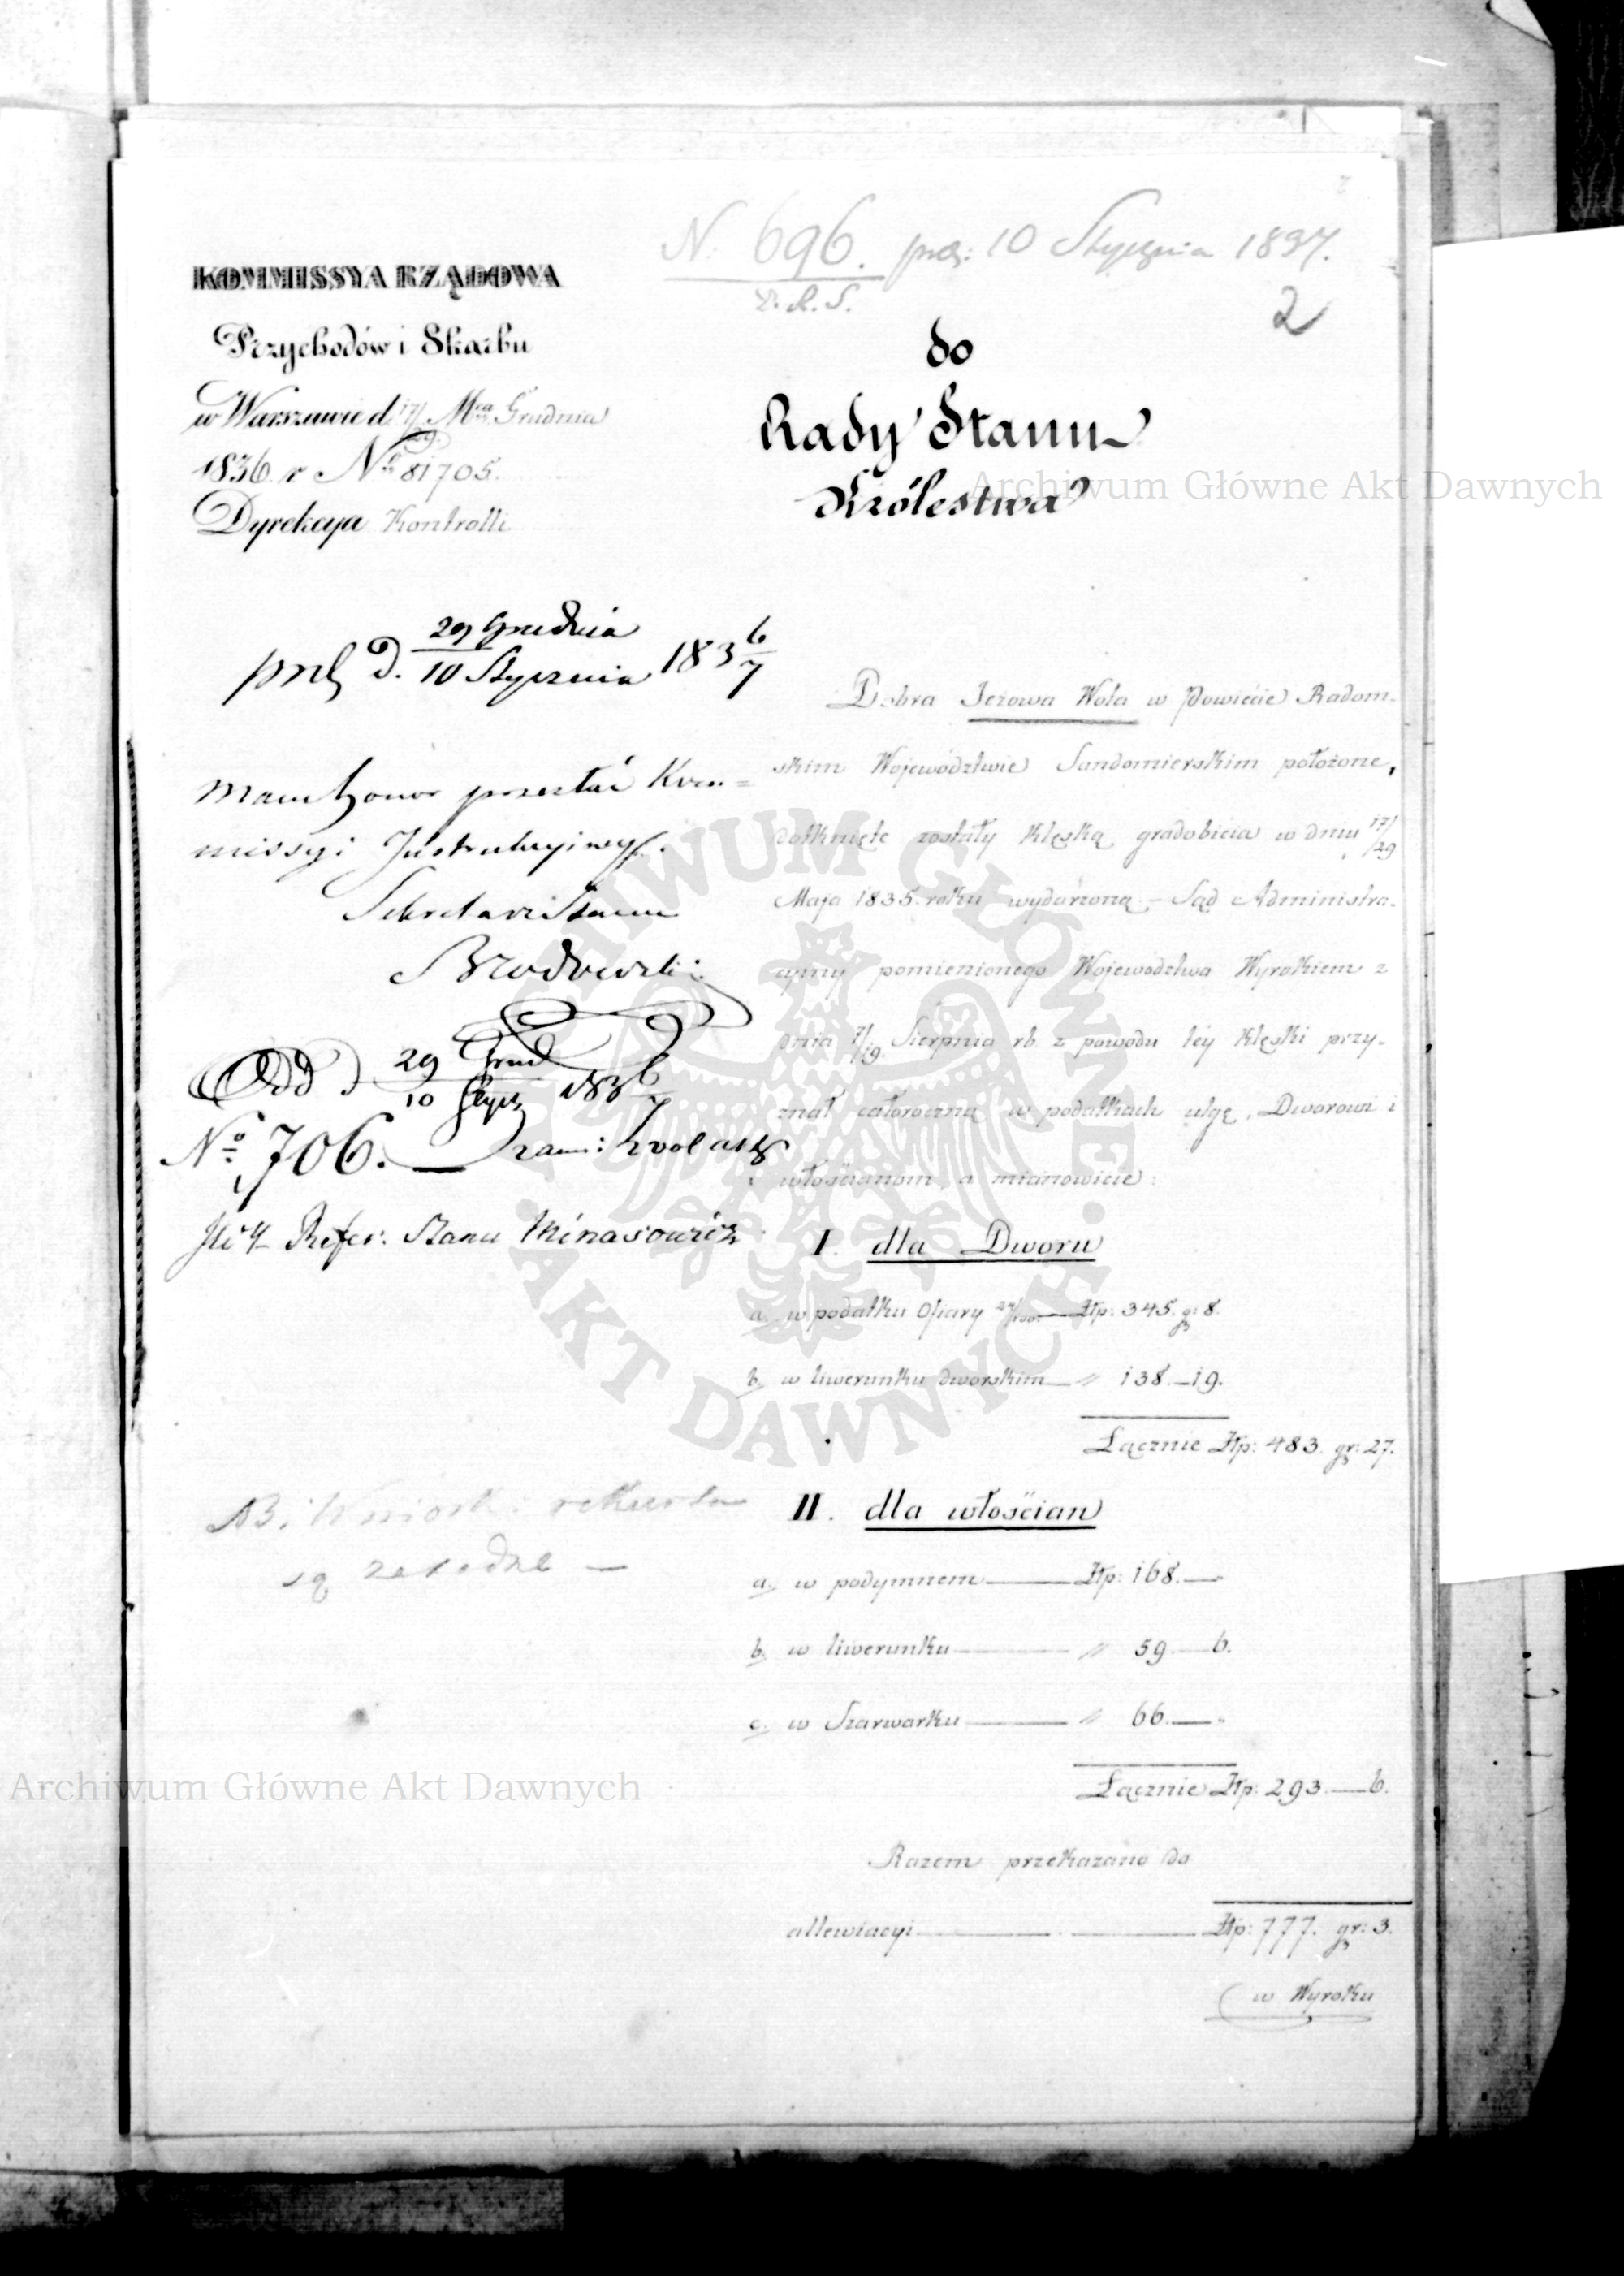 N. 696. prez: 10 Stycznia 1837.
2
KOMMISSYA RZĄDOWA
Przychodów i Skarbu
w Warszawie d 17/29 Mca Grudnia
1836 r No 81705.
Dyrekcya Kontrolli
do
Rady Stanu
Królestwa
d. 29 Grudnia / 10 Stycznia 183 6/7
Mam honor przesłać Kom=
missyi Instrukcyjney.
Sekretarz Stanu
Brodowski
Odd d 29 Grud / 10 Stycz 183 6/7
No 706.
Refer: Stanu Minasowicz
NB: Wnioski rekursu
są
Dobra Jeżowa Wola w Powiecie Radom-
skim Województwie Sandomierskim położone,
dotknięte zostały klęską gradobicia w dniu 17/29
Maja 1835. roku wydarzoną – Sąd Administra-
cyiny pomienionego Województwa Wyrokiem z
dnia 7/19. Sierpnia rb. z powodu téy klęski przy-
znał całoroczną w podatkach ulgę, Dworowi i
włościanom, a mianowicie:
I. dla Dworu
a. w podatku Ofiary 24/100 — Złp: 345. gr 8.
b. w liwerunku dworskim — " 138.—19.
Łącznie Złp: 483. gr: 27.
II. dla włościan
a. w podymnem — Złp: 168.—
b. w liwerunku — " 59.—6.
c. w Szarwarku — " 66.—"
Łącznie Złp: 293.—6.
Razem przekazano do
allewiacyi — Złp: 777. gr: 3.
w Wyroku
Archiwum Główne Akt Dawnych
Archiwum Główne Akt Dawnych
ARCHIWUM GŁÓWNE AKT DAWNYCH